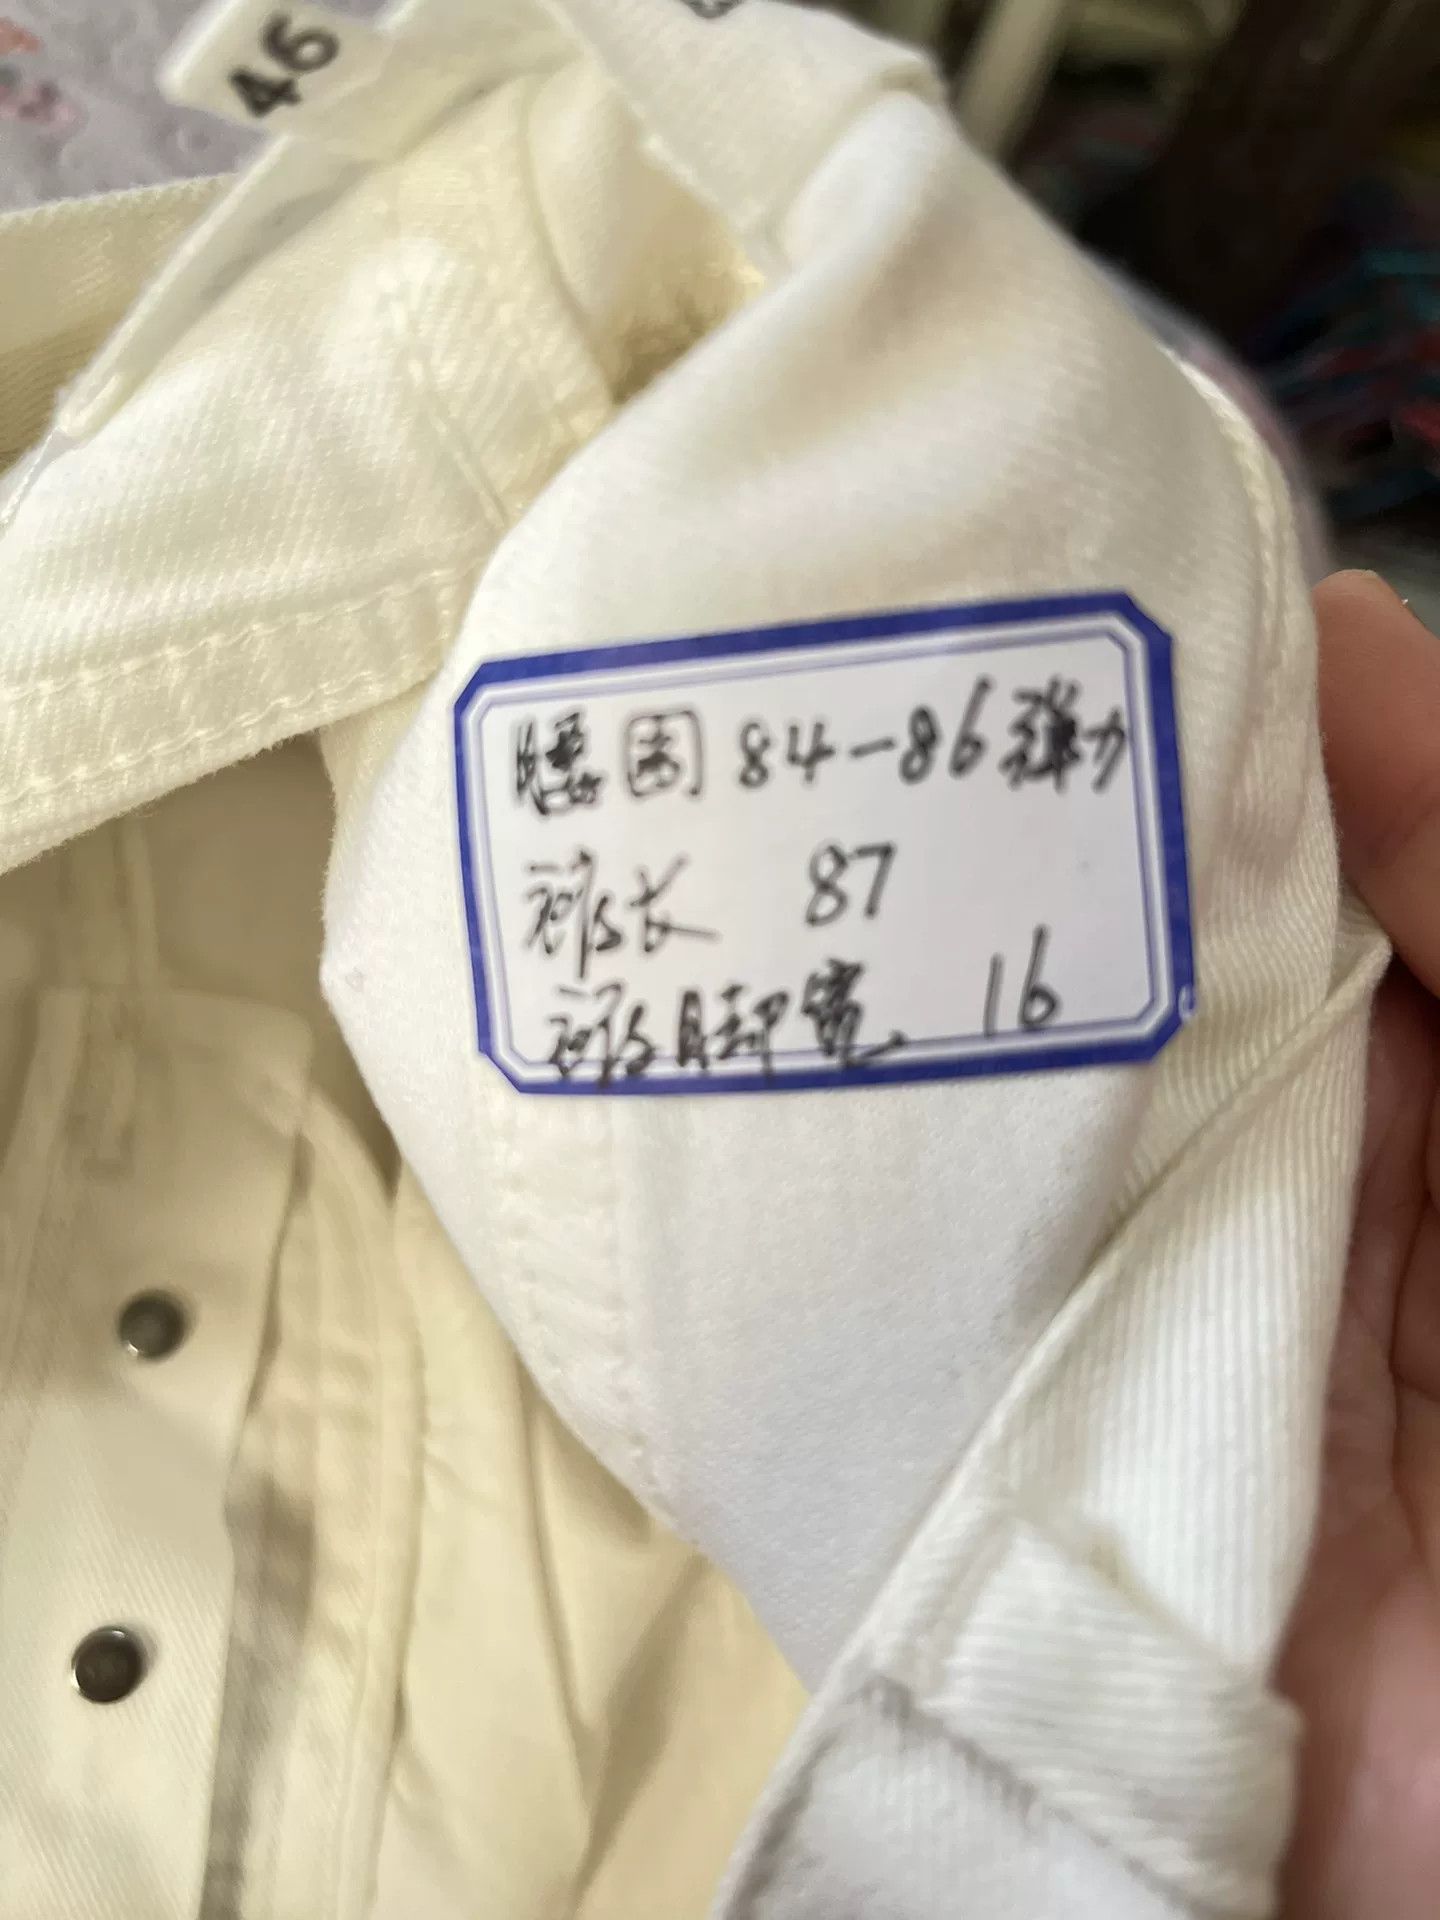 46
腰围 84-86 弹力
裤长 87
裤脚宽 16